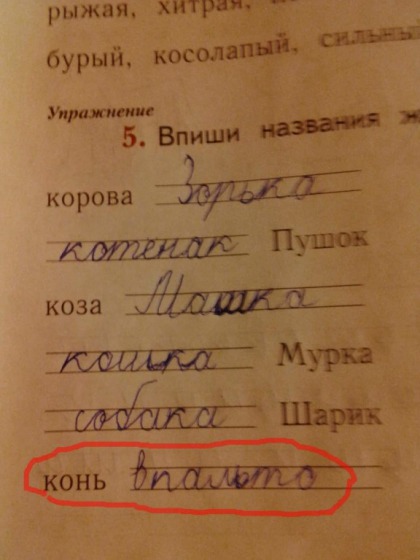 рыжая, хитрая,
бурый, косолапый, сильны
Упражнение
5. Впиши названия ж
корова Зорька
котенак Пушок
коза Машка
кошка Мурка
собака Шарик
конь впальто